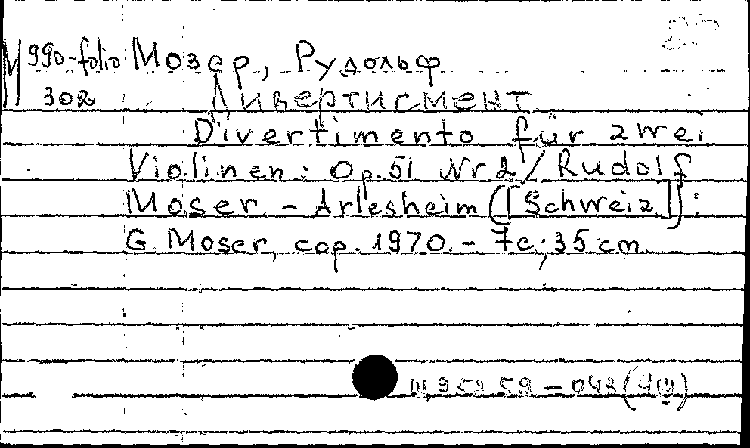 М 990-folio Мозер, Рудольф
302 Дивертисмент
Divertimento für zwei
Violinen : Op.51 Nr 2 / Rudolf
Moser. - Arlesheim ([Schweiz]) :
G. Moser, cop. 1970. - 7 c.; 35 cm